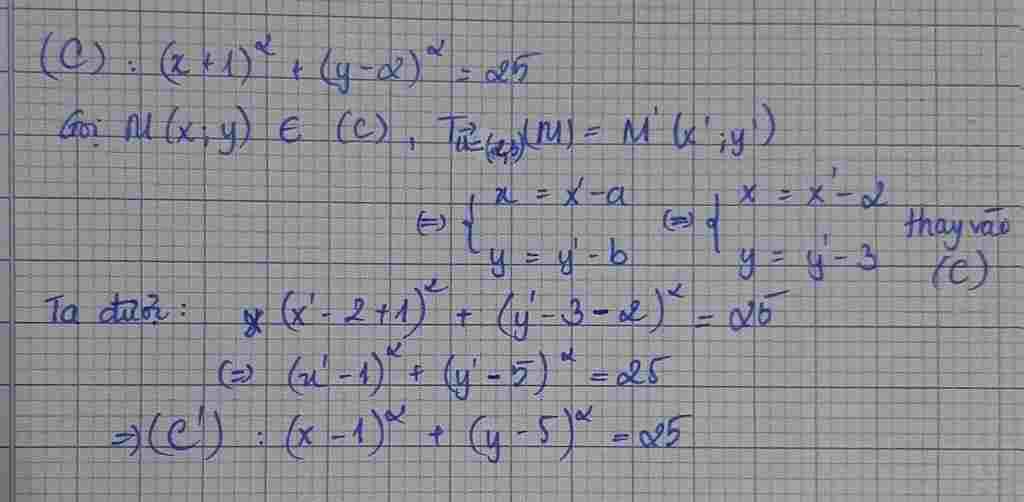 (C) : (x+1)² + (y-2)² = 25
Gọi M(x;y) ∈ (C), T u⃗=(2;3) (M) = M'(x';y')
(=) { x = x'-a (=) { x = x'-2 thay vào
y = y'-b y = y'-3 (C)
Ta được: (x'-2+1)² + (y'-3-2)² = 25
(=) (x'-1)² + (y'-5)² = 25
=) (C') : (x-1)² + (y-5)² = 25